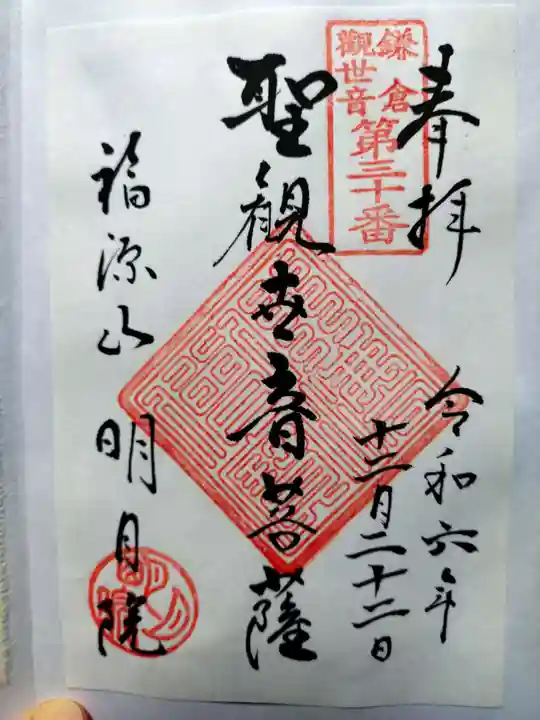 奉拝
鎌倉
觀世音
第三十番
令和六年
十二月二十二日
聖観世音菩薩
福源山
明月院